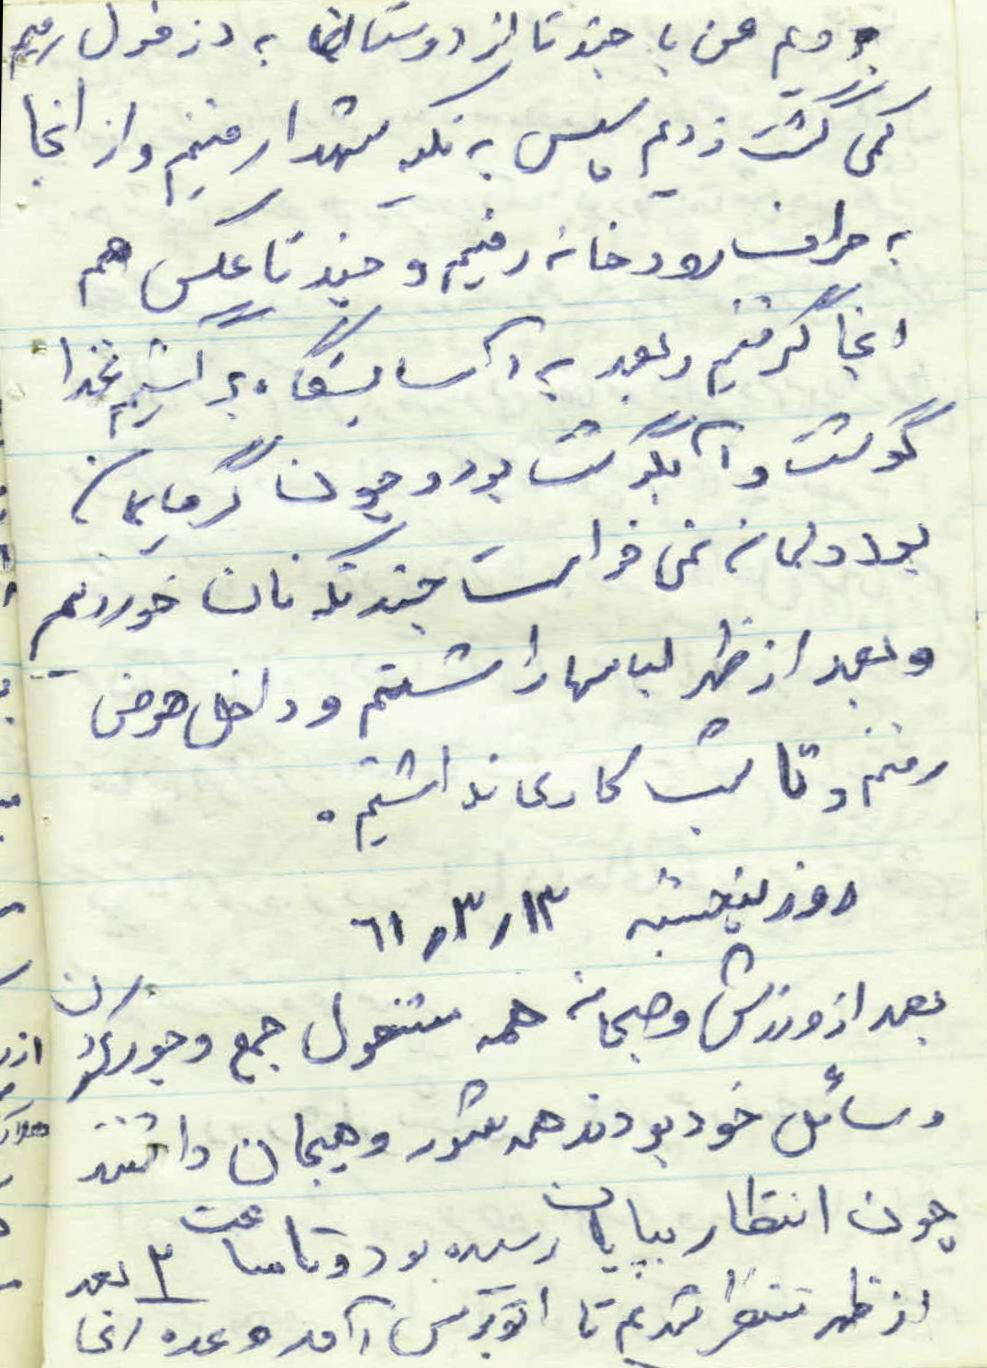 بودیم من با چند تا از دوستان به دزفول رفتیم
کمی گشت زدیم سپس به تکیه شهدا رفتیم و از انجا
به طرف رودخانه رفتیم و چند تا عکس هم
انجا گرفتیم و بعد به آسایشگاه برگشتیم غذا
گوشت و آبگوشت بود و چون گرمایمان
بود و لمانه نمی خواست چند تکه نان خوردیم
و بعد از ظهر لباسها را شستیم و داخل حوض
رفتیم و تا شب کاری نداشتیم.
روز پنجشبه ۱۳ر۳ر۶۱
بعد از ورزش و صبحانه همه مشغول جمع و جور کردن
وسائل خود بودند همه شور و هیجان داشتند
چون انتظار بپایان رسیده بود و تا ساعت ۳ بعد
از ظهر منتظر شدیم تا اتوبوس آمد و عده انجا